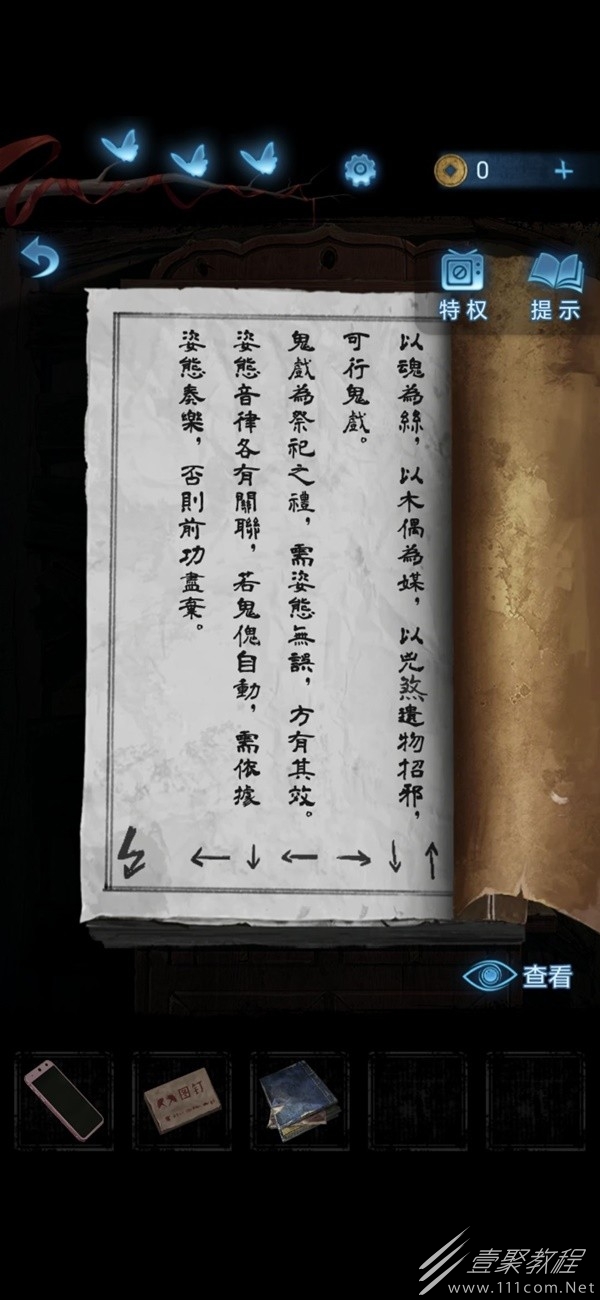 0
特权
提示
以魂為絲，以木偶為媒，以兇煞遺物招邪，
可行鬼戲。
鬼戲為祭祀之禮，需姿態無誤，方有其效。
姿態音律各有關聯，若鬼傀自動，需依據
姿態奏樂，否則前功盡棄。
↑ ↓ → ← ↓ ←
查看
图钉
壹聚教程
www.111com.Net